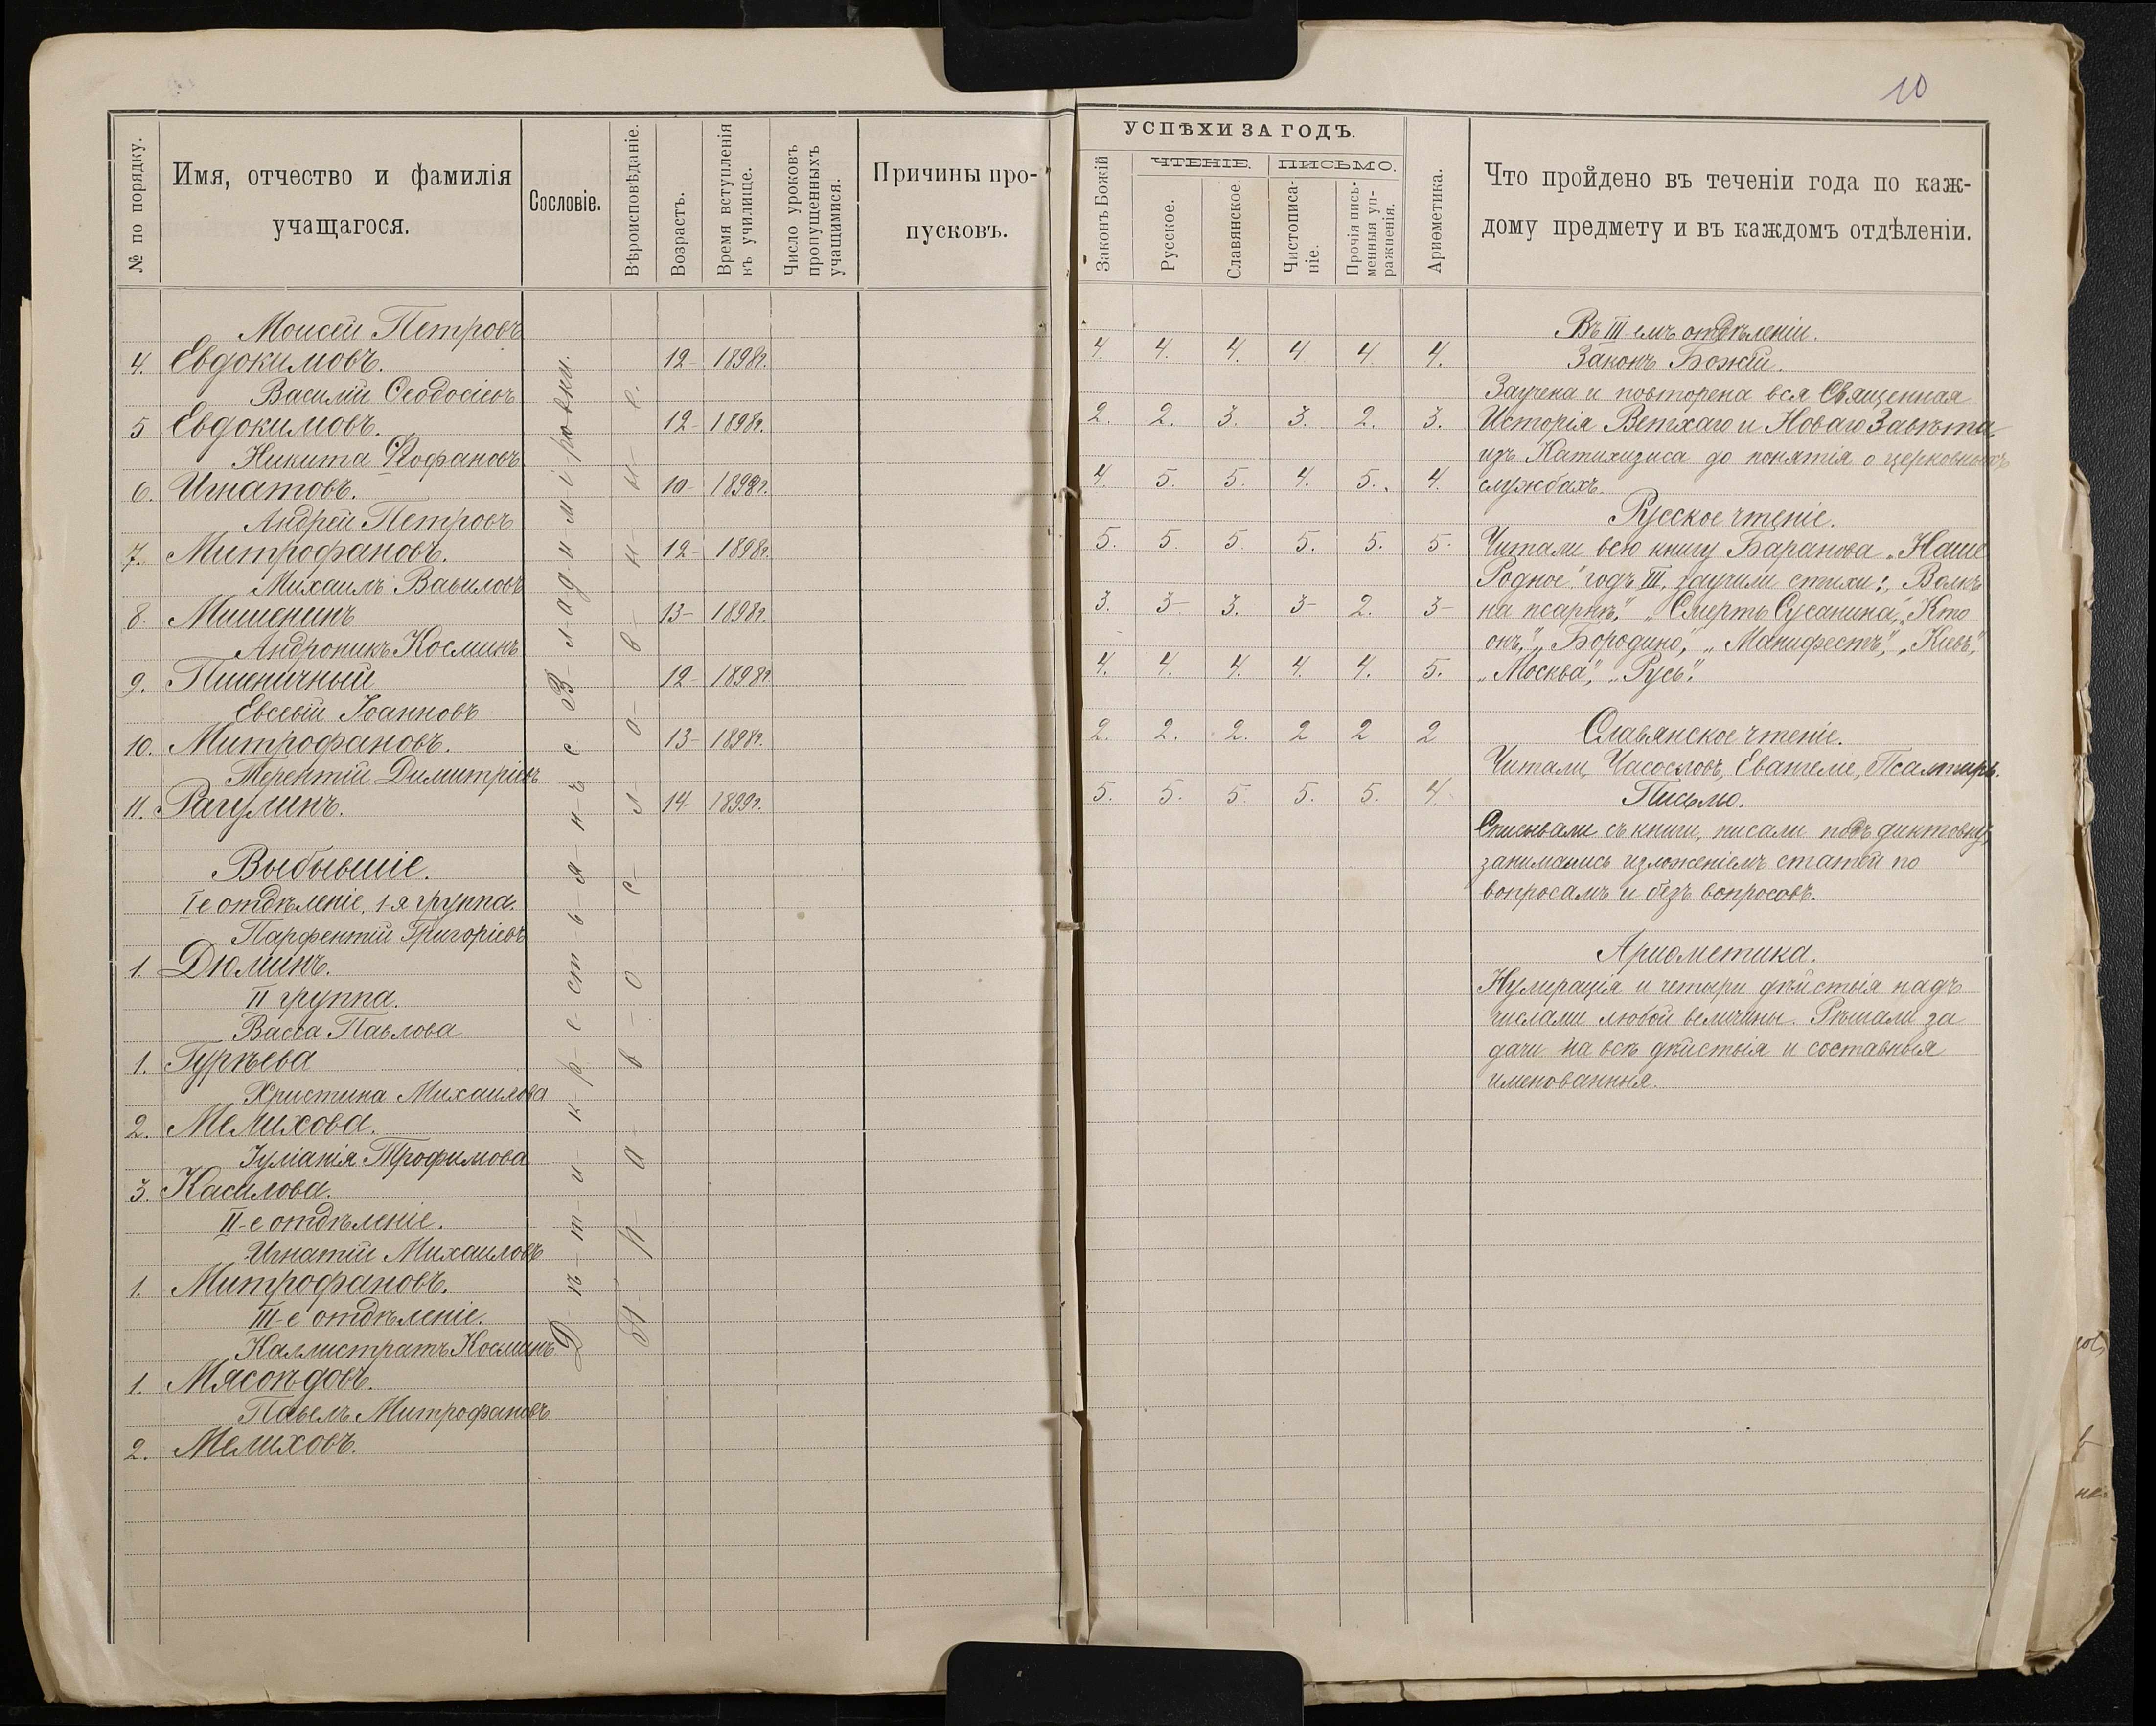 10
№ по порядку.
Имя, отчество и фамилія
учащагося.
Сословіе.
Вѣроисповѣданіе.
Возрастъ.
Время вступленія
въ училище.
Число уроковъ
пропущенныхъ
учащимися.
Причины про-
пусковъ.
УСПѢХИ ЗА ГОДЪ.
Законъ Божій
ЧТЕНІЕ.
Русское.
Славянское.
ПИСЬМО.
Чистописа-
ніе.
Прочія пись-
менныя уп-
ражненія.
Ариѳметика.
Что пройдено въ теченіи года по каж-
дому предмету и въ каждомъ отдѣленіи.
Моисей Петровъ
4. Евдокимовъ. 12- 1898г. 4. 4. 4. 4. 4. 4.
Василій Ѳеодосіевъ
5 Евдокимовъ. 12- 1898г. 2. 2. 3. 3. 2. 3.
Никита Ѳеофановъ
6. Игнатовъ. 10- 1898г. 4. 5. 5. 4. 5. 4.
Андрей Петровъ
7. Митрофановъ. 12- 1898г. 5. 5. 5. 5. 5. 5.
Михаилъ Вавиловъ
8. Мишенинъ 13- 1898г. 3. 3- 3. 3- 2. 3-
Андроникъ Косминъ
9. Пшеничный 12- 1898г. 4. 4. 4. 4. 4. 5.
Евсевій Іоанновъ
10. Митрофановъ. 13- 1898г. 2. 2. 2. 2 2 2
Терентій Димитріевъ
11. Рагулинъ. 14- 1899г. 5. 5. 5. 5. 5. 4.
Выбывшіе.
I е отдѣленіе, 1-я группа.
Парфентій Григорьевъ
1. Дюминъ.
II группа.
Васса Павлова
1. Гурѣева
Христина Михаилова
2. Мелихова.
Іуліанія Трофимова
3. Касилова.
II-е отдѣленіе.
Игнатій Михаиловъ
1. Митрофановъ.
III-е отдѣленіе.
Каллистратъ Косминъ
1. Мясоѣдовъ.
Павелъ Митрофановъ
2. Мелиховъ.
Д-ѣ-т-и- к-р-е-ст-ь-я-н-ъ с. В-лад-и-м-і-ровки.
П-р-а-в-о-с-л-о-в-н-ы-е.
Въ III-емъ отдѣленіи.
Законъ Божій.
Заучена и повторена вся Священная
Исторія Ветхаго и Новаго Завѣта,
изъ Катихизиса до понятія о церковныхъ
службахъ.
Русское чтеніе.
Читали всю книгу Баранова „Наше
Родное" годъ III, заучили стихи: „Волкъ
на псарнѣ", „Смерть Сусанина", „Кто
онъ", „Бородино", „Манифестъ", „Кіевъ",
„Москва", „Русь".
Славянское чтеніе.
Читали, Часословъ, Евангеліе, Псалтирь.
Письмо.
Списывали съ книги, писали подъ диктовку,
занимались изложеніемъ статей по
вопросамъ и безъ вопросовъ.
Ариѳметика.
Нумерація и четыре дѣйствія надъ
числами любой величины. Рѣшали за
дачи на всѣ дѣйствія и составныя
именованныя.